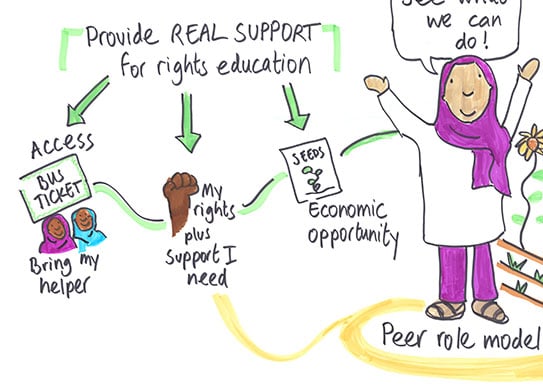 See what
we can
do!
Provide REAL SUPPORT
for rights education
Access
BUS
TICKET
Bring my
helper
My
rights
plus
Support I
need
SEEDS
Economic
opportunity
Peer role model